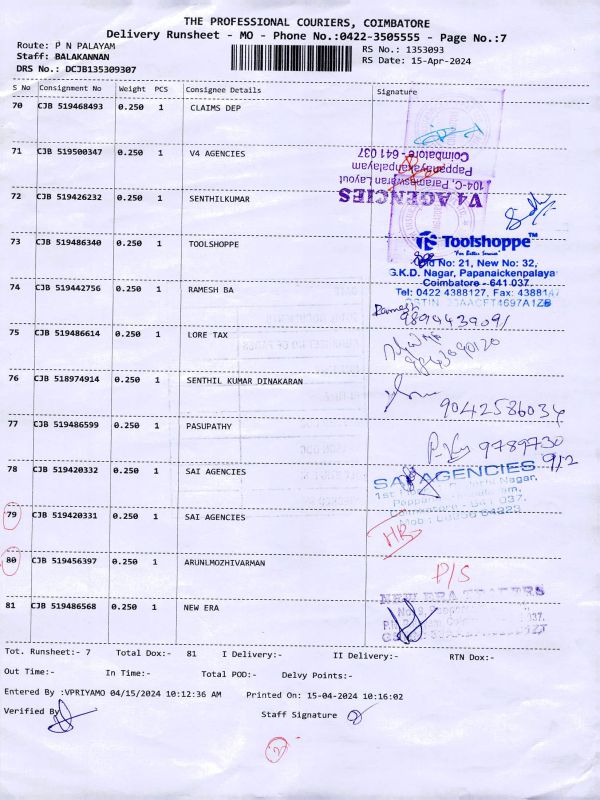 THE PROFESSIONAL COURIERS, COIMBATORE
Delivery Runsheet - MO - Phone No.:0422-3505555 - Page No.:7
Route: P N PALAYAM
RS No.: 1353093
Staff: BALAKANNAN
RS Date: 15-Apr-2024
DRS No.: DCJB135309307
S No Consignment No Weight PCS Consignee Details Signature
70 CJB 519468493 0.250 1 CLAIMS DEP
71 CJB 519500347 0.250 1 V4 AGENCIES
Coimbatore - 641 037
Pappanaickenpalayam
104-C, Parameswaran Layout
V4 AGENCIES
72 CJB 519426232 0.250 1 SENTHILKUMAR
73 CJB 519486340 0.250 1 TOOLSHOPPE
Toolshoppe™
Old No: 21, New No: 32,
G.K.D. Nagar, Papanaickenpalaya
Coimbatore - 641 037.
Tel: 0422 4388127, Fax: 4388147
74 CJB 519442756 0.250 1 RAMESH BA
Ramesh
9894439091
75 CJB 519486614 0.250 1 LORE TAX
76 CJB 518974914 0.250 1 SENTHIL KUMAR DINAKARAN
9042586034
77 CJB 519486599 0.250 1 PASUPATHY
9789730
912
78 CJB 519420332 0.250 1 SAI AGENCIES
SAI AGENCIES
79 CJB 519420331 0.250 1 SAI AGENCIES
037.
80 CJB 519456397 0.250 1 ARUNLMOZHIVARMAN
P/S
81 CJB 519486568 0.250 1 NEW ERA
NEW ERA TRADERS
Tot. Runsheet:- 7 Total Dox:- 81 I Delivery:- II Delivery:- RTN Dox:-
Out Time:- In Time:- Total POD:- Delvy Points:-
Entered By :VPRIYAMO 04/15/2024 10:12:36 AM Printed On: 15-04-2024 10:16:02
Verified By
Staff Signature